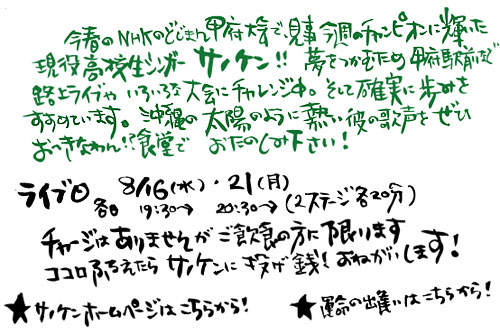 今春のNHKのどじまん甲府大会で、見事今週のチャンピオンに輝いた
現役高校生シンガー サノケン!! 夢をつかむため甲府駅前で
路上ライブや いろいろな大会にチャレンジ中。そして確実に歩みを
すすめています。沖縄の太陽のように熱い彼の歌声をぜひ
おっきなわん!?食堂で おたのしみ下さい!
ライブ日 8/16(水)・21(月)
各日 19:30→ 20:30→(2ステージ各20分)
チャージはありませんがご飲食の方に限ります
ココロふるえたら サノケンに投げ銭!おねがいします!
★サノケンホームページはこちらから!
★運命の出逢いはこちらから!